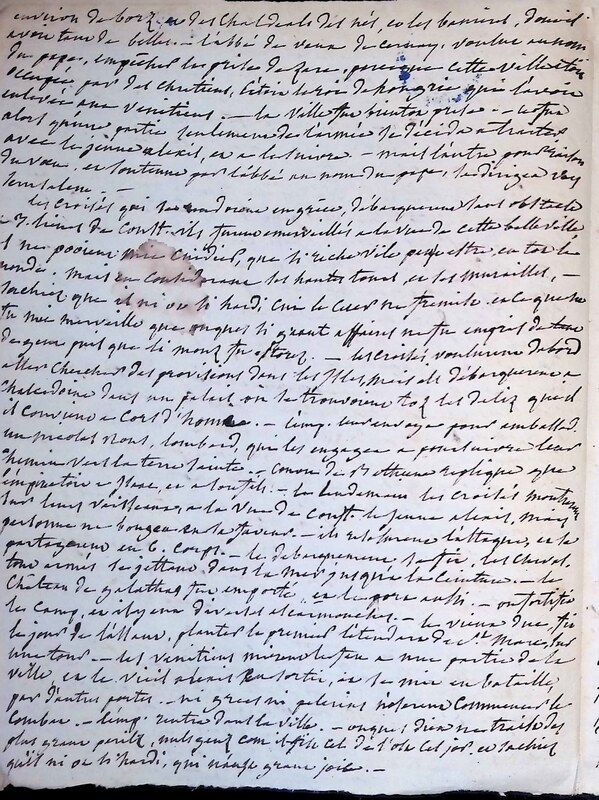 environ de borz, et des chasteals des nés, et les baniers, dont il
avoit tant de belles. — l'abbé de vaux de cernay, voulut au nom
du pape, empêcher la prise de zara, parce que cette ville était
occupée par des chretiens, c'étoit le roi de hongrie, qui l'avoit
enlevée aux venitiens. — la ville fut bientot prise — ce fut
alors qu'une partie seulement de l'armée se décida a traiter
avec le jeune alexis, et a le suivre — mais l'autre
de vaux, et soutenue par l'abbé au nom du pape, se dirigea vers
jerusalem. —
les croisés qui se rendoient en grèce, débarquerent sans obstacle
a 3. lieues de Const. ils furent emerveillés a la vue de cette belle ville
il ne pooient mie cuidier, que si riche vile peust estre, en tot le
monde. mais en considerant les hautes tours, et les murailles, —
sachiez que il ni ot si hardi cui le cuer ne fremist. et ce que ne
fu mie merveille que onques si grant affaires ne fu empris de
de gent puis que li monz fu estorez. — les croisés voulurent d'abord
aller chercher des provisions dans les Isles mais ils débarquerent a
Chalcedoine dans un palais, ou se trouvoient toz les delez que il
convient a cors d'home. — l'emp. leur envoya pour ambassad.
un nicolas Roux, lombard, qui les engagea a poursuivre leur
chemin vers la terre sainte. — conon de Bethune repliqua que
l'empire étoit a Isaac, et a son fils. — le lendemain les croisés montrerent
sur leurs vaisseaux, a la vue de Const. le jeune alexis, mais
personne ne bougea en sa faveur. — ils resolurent l'attaque, et se
partagerent en 6. corps. — le debarquement se fit, les cheval.
tout armés se jettant dans la mer jusqu'a la ceinture. — le
Chateau de galatha fut emporté, et le port aussi. — on fortifia
le camp, et il y eut diverses escarmouches. — le vieux duc fit
le jour de l'assaut, planter le premier l'etendard de St Marc, sur
une tour. — les venitiens mirent le feu a une partie de la
ville, et le vieil alexis en sortit, et se mit en bataille,
par d'autres portes. — ni grecs ni pelerins n'oserent commencer le
combat. — l'emp. rentra dans la ville. — onques dieu ne traist de
plus grant peril, nules genz com il fist cels de l'ost cel jor. et sachiez
qu'il ni ot si hardi, qui n'aust grant joie. —